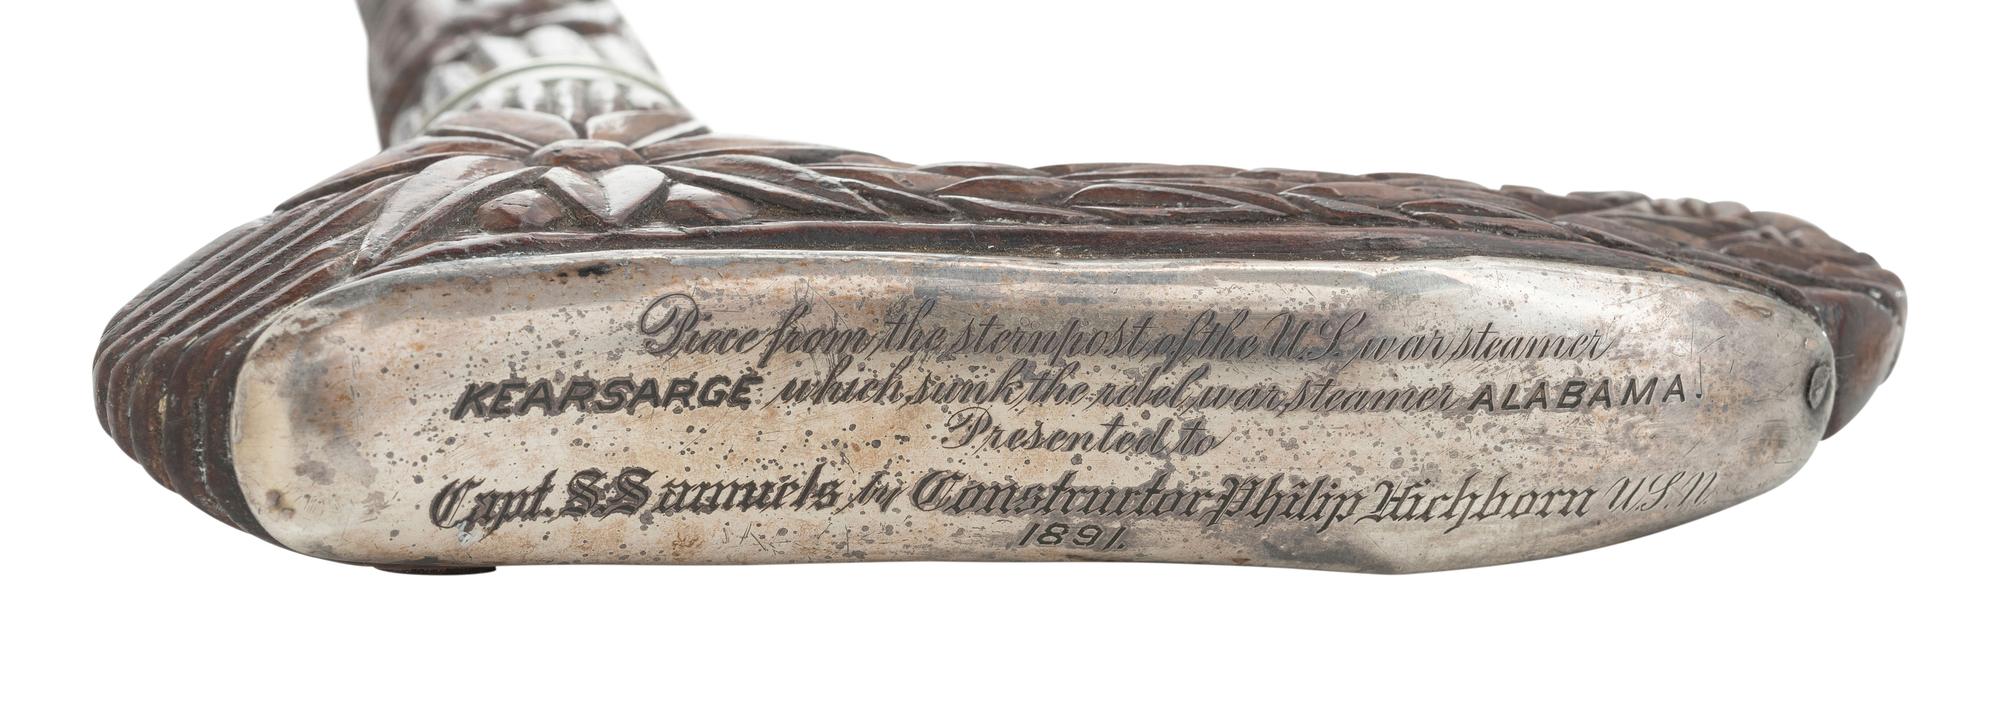 Piece from the sternpost of the U.S. war steamer
KEARSARGE which sunk the rebel war steamer ALABAMA!
Presented to
Capt. S. Samuels by Constructor Philip Hichborn U.S.N.
1891.